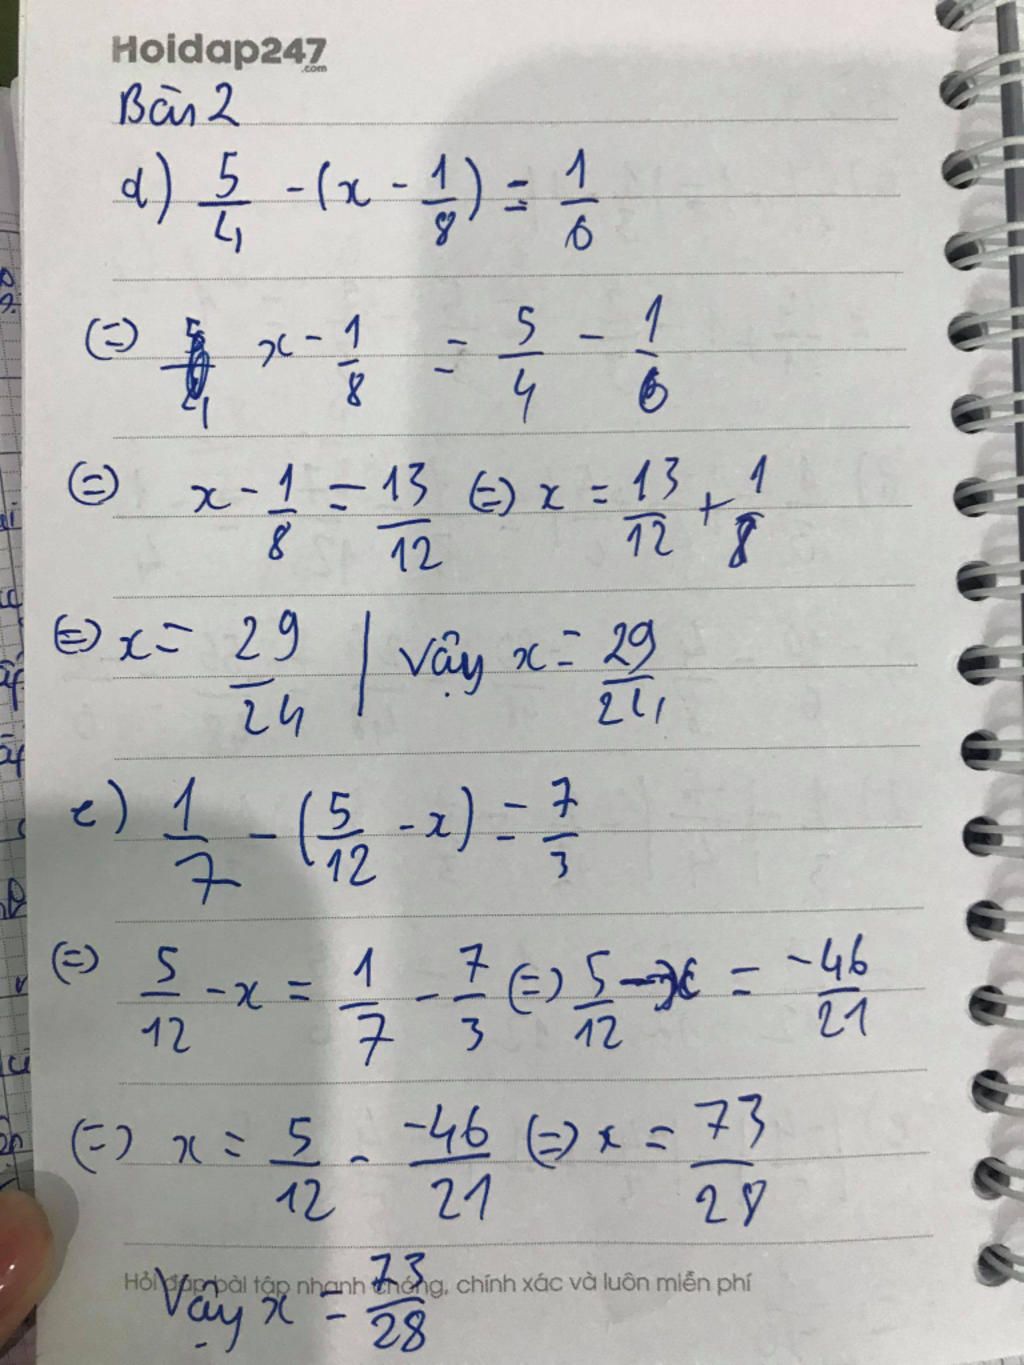 Hoidap247
.com
Bài 2
d) 5/4 - (x - 1/8) = 1/6
(=) x - 1/8 = 5/4 - 1/6
(=) x - 1/8 = 13/12 (=) x = 13/12 + 1/8
(=) x = 29/24 | Vậy x = 29/24
e) 1/7 - (5/12 - x) = 7/3
(=) 5/12 - x = 1/7 - 7/3 (=) 5/12 - x = -46/21
(=) x = 5/12 - -46/21 (=) x = 73/28
Hỏi đáp bài tập nhanh chóng, chính xác và luôn miễn phí
Vậy x = 73/28